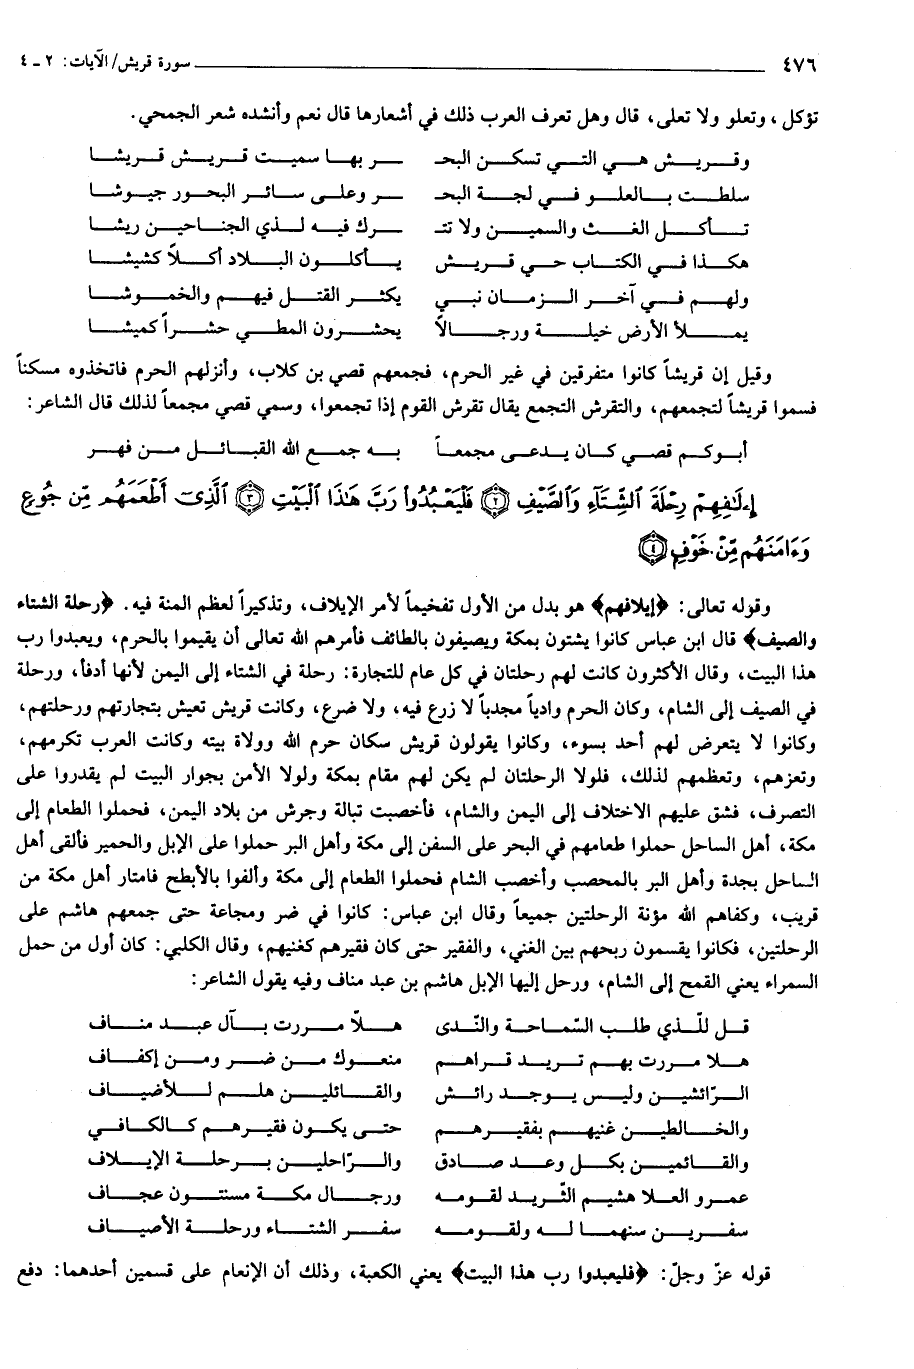 ٤٧٦ سورة قريش/ الآيات: ٢ ـ ٤
تؤكل، وتعلو ولا تعلى، قال وهل تعرف العرب ذلك في أشعارها قال نعم وأنشده شعر الجمحي.
وقريش هي التي تسكن البحـ ـر بها سميت قريش قريشا
سلطت بالعلو في لجة البحـ ـر وعلى سائر البحور جيوشا
تأكل الغث والسمين ولا تتـ ـرك فيه لذي الجناحين ريشا
هكذا في الكتاب حي قريش يأكلون البلاد أكلاً كشيشا
ولهم في آخر الزمان نبي يكثر القتل فيهم والخموشا
يملأ الأرض خيلة ورجالاً يحشرون المطي حشراً كميشا
وقيل إن قريشاً كانوا متفرقين في غير الحرم، فجمعهم قصي بن كلاب، وأنزلهم الحرم فاتخذوه مسكناً
فسموا قريشاً لتجمعهم، والتقرش التجمع يقال تقرش القوم إذا تجمعوا، وسمي قصي مجمعاً لذلك قال الشاعر:
أبوكم قصي كان يدعى مجمعاً به جمع الله القبائل من فهر
إِۦلَٰفِهِمْ رِحْلَةَ ٱلشِّتَآءِ وَٱلصَّيْفِ ٢ فَلْيَعْبُدُوا۟ رَبَّ هَٰذَا ٱلْبَيْتِ ٣ ٱلَّذِىٓ أَطْعَمَهُم مِّن جُوعٍ
وَءَامَنَهُم مِّنْ خَوْفٍۭ ٤
وقوله تعالى: ﴿إيلافهم﴾ هو بدل من الأول تفخيماً لأمر الإيلاف، وتذكيراً لعظم المنة فيه. ﴿رحلة الشتاء
والصيف﴾ قال ابن عباس كانوا يشتون بمكة ويصيفون بالطائف فأمرهم الله تعالى أن يقيموا بالحرم، ويعبدوا رب
هذا البيت، وقال الأكثرون كانت لهم رحلتان في كل عام للتجارة: رحلة في الشتاء إلى اليمن لأنها أدفأ، ورحلة
في الصيف إلى الشام، وكان الحرم وادياً مجدباً لا زرع فيه، ولا ضرع، وكانت قريش تعيش بتجارتهم ورحلتهم،
وكانوا لا يتعرض لهم أحد بسوء، وكانوا يقولون قريش سكان حرم الله وولاة بيته وكانت العرب تكرمهم،
وتعزهم، وتعظمهم لذلك، فلولا الرحلتان لم يكن لهم مقام بمكة ولولا الأمن بجوار البيت لم يقدروا على
التصرف، فشق عليهم الاختلاف إلى اليمن والشام، فأخصبت تبالة وجرش من بلاد اليمن، فحملوا الطعام إلى
مكة، أهل الساحل حملوا طعامهم في البحر على السفن إلى مكة وأهل البر حملوا على الإبل والحمير فألقى أهل
الساحل بجدة وأهل البر بالمحصب وأخصب الشام فحملوا الطعام إلى مكة وألفوا بالأبطح فامتار أهل مكة من
قريب، وكفاهم الله مؤنة الرحلتين جميعاً وقال ابن عباس: كانوا في ضر ومجاعة حتى جمعهم هاشم على
الرحلتين، فكانوا يقسمون ربحهم بين الغني، والفقير حتى كان فقيرهم كغنيهم، وقال الكلبي: كان أول من حمل
السمراء يعني القمح إلى الشام، ورحل إليها الإبل هاشم بن عبد مناف وفيه يقول الشاعر:
قل للّذي طلب السّماحة والنّدى هلاّ مررت بآل عبد مناف
هلا مررت بهم تريد قراهم منعوك من ضر ومن إكفاف
الرّائشين وليس يوجد رائش والقائلين هلم للأضياف
والخالطين غنيهم بفقيرهم حتى يكون فقيرهم كالكافي
والقائمين بكل وعد صادق والرّاحلين برحلة الإيلاف
عمرو العلا هشيم الثّريد لقومه ورجال مكة مسنتون عجاف
سفرين سنهما له ولقومه سفر الشتاء ورحلة الأصياف
قوله عزّ وجلّ: ﴿فليعبدوا رب هذا البيت﴾ يعني الكعبة، وذلك أن الإنعام على قسمين أحدهما: دفع